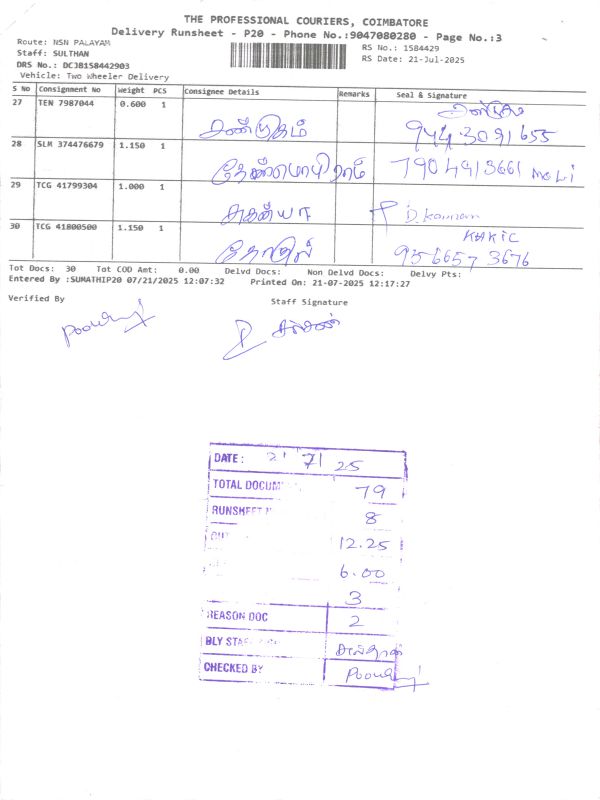 THE PROFESSIONAL COURIERS, COIMBATORE
Delivery Runsheet - P20 - Phone No.:9047080280 - Page No.:3
Route: NSN PALAYAM
RS No.: 1584429
Staff: SULTHAN
RS Date: 21-Jul-2025
DRS No.: DCJB158442903
Vehicle: Two Wheeler Delivery
S No Consignment No Weight PCS Consignee Details Remarks Seal & Signature
27 TEN 7987044 0.600 1
சண்முகம் 944 3091 655
28 SLM 374476679 1.150 1
7904913661
29 TCG 41799304 1.000 1
சுகன்யா D. Kannan
30 TCG 41800500 1.150 1
கோகுல் 956657 3676
Tot Docs: 30 Tot COD Amt: 0.00 Delvd Docs: Non Delvd Docs: Delvy Pts:
Entered By :SUMATHIP20 07/21/2025 12:07:32 Printed On: 21-07-2025 12:17:27
Verified By Staff Signature
DATE: 21 7 25
TOTAL DOCUM 79
RUNSHEET 8
12.25
6.00
3
REASON DOC 2
DLY STAFF சுல்தான்
CHECKED BY